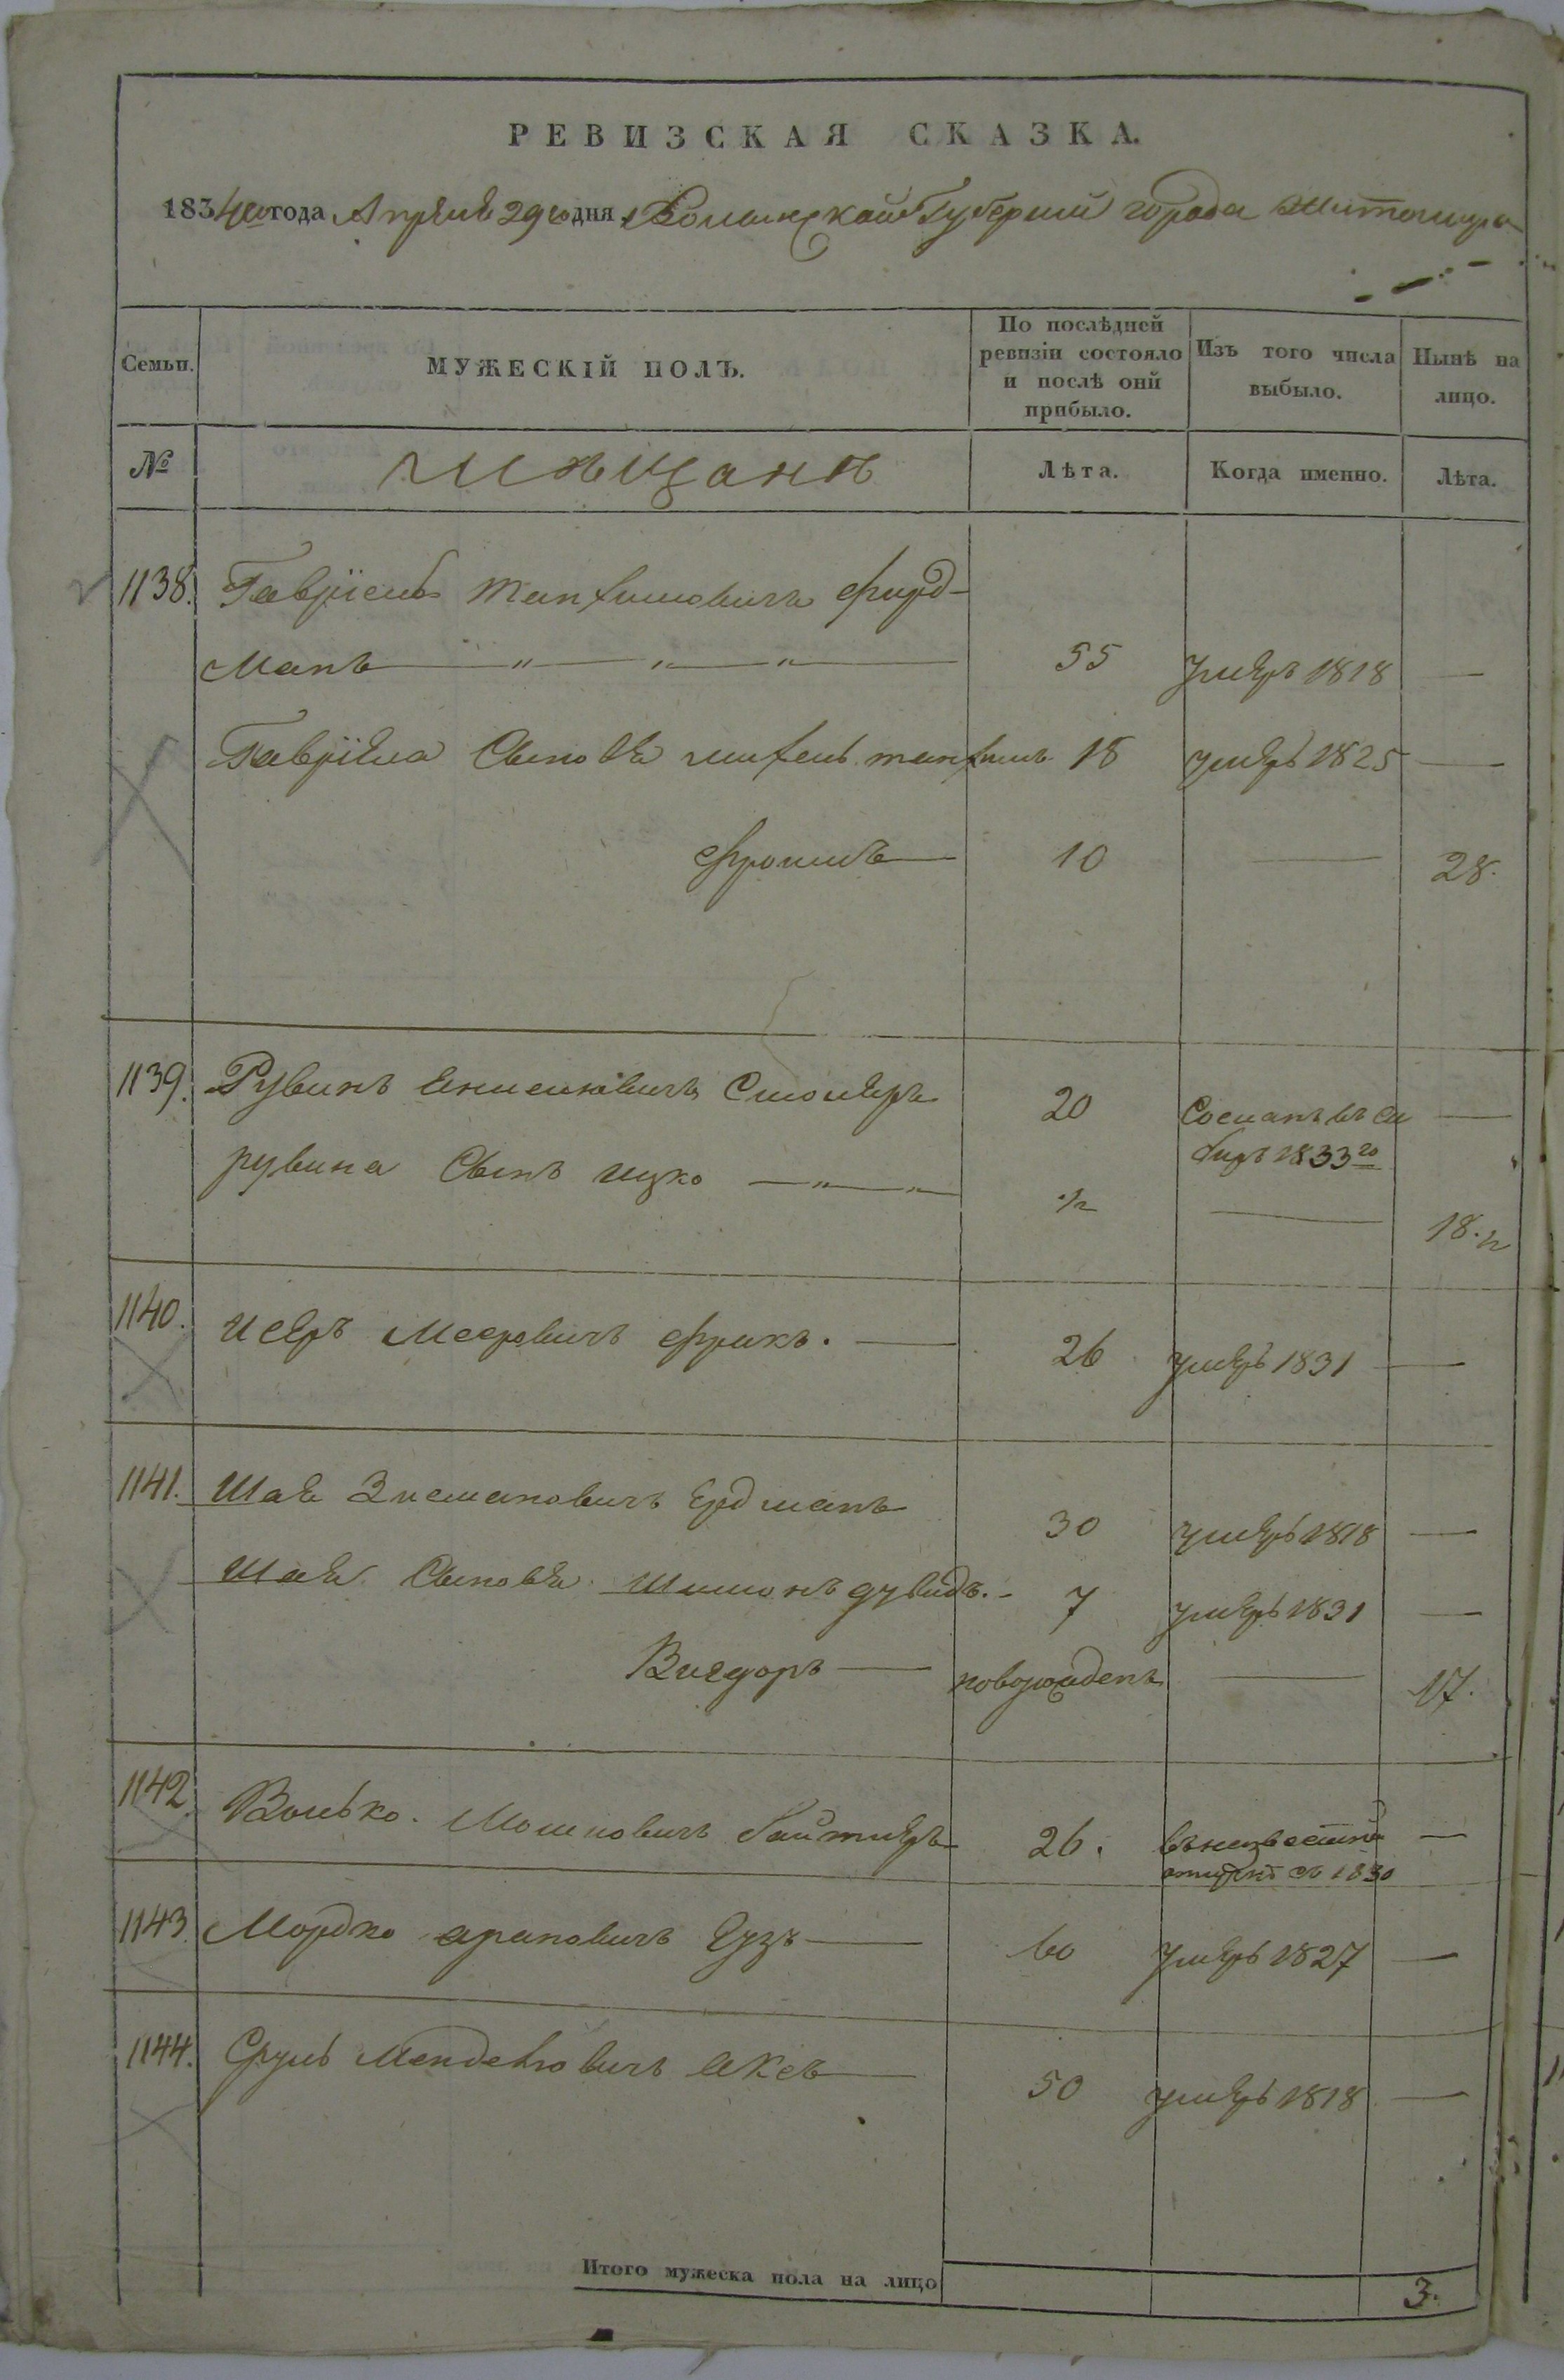 РЕВИЗСКАЯ СКАЗКА.
1834го года Апреля 29го дня Волынской Губернии города Житомира
Семьи. МУЖЕСКІЙ ПОЛЪ. По послѣдней ревизіи состояло и послѣ оній прибыло. Изъ того числа выбыло. Нынѣ на лицо.
№ Мѣщанѣ Лѣта. Когда именно. Лѣта.
1138. Гавріель Манфишовичъ Фирд-
манъ 55 умеръ 1818 —
Гавріела Сынове 18 умеръ 1825 —
Фроимъ 10 — 28.
1139. Рувинъ Смолеръ 20 Сосланъ въ Си —
бирь 1833го
рувина Сынъ ицко ½ — 18.½
1140. Исеръ Мееровичъ Фрикъ. 26 умеръ 1831 —
1141. Шае Зисмановичъ Ердманъ 30 умеръ 1818 —
Шае Сынове Шимонъ дувидъ. 7 умеръ 1831 —
Вигдоръ — новорожденъ — 17.
1142 Волько Мошковичъ 26. въ неизвестной —
отлучке съ 1830
1143. Мордко ароновичъ Гузъ 60 умеръ 1827 —
1144. Сруль Менделювичъ Аксъ 50 умеръ 1818 —
Итого мужеска пола на лицо 3.